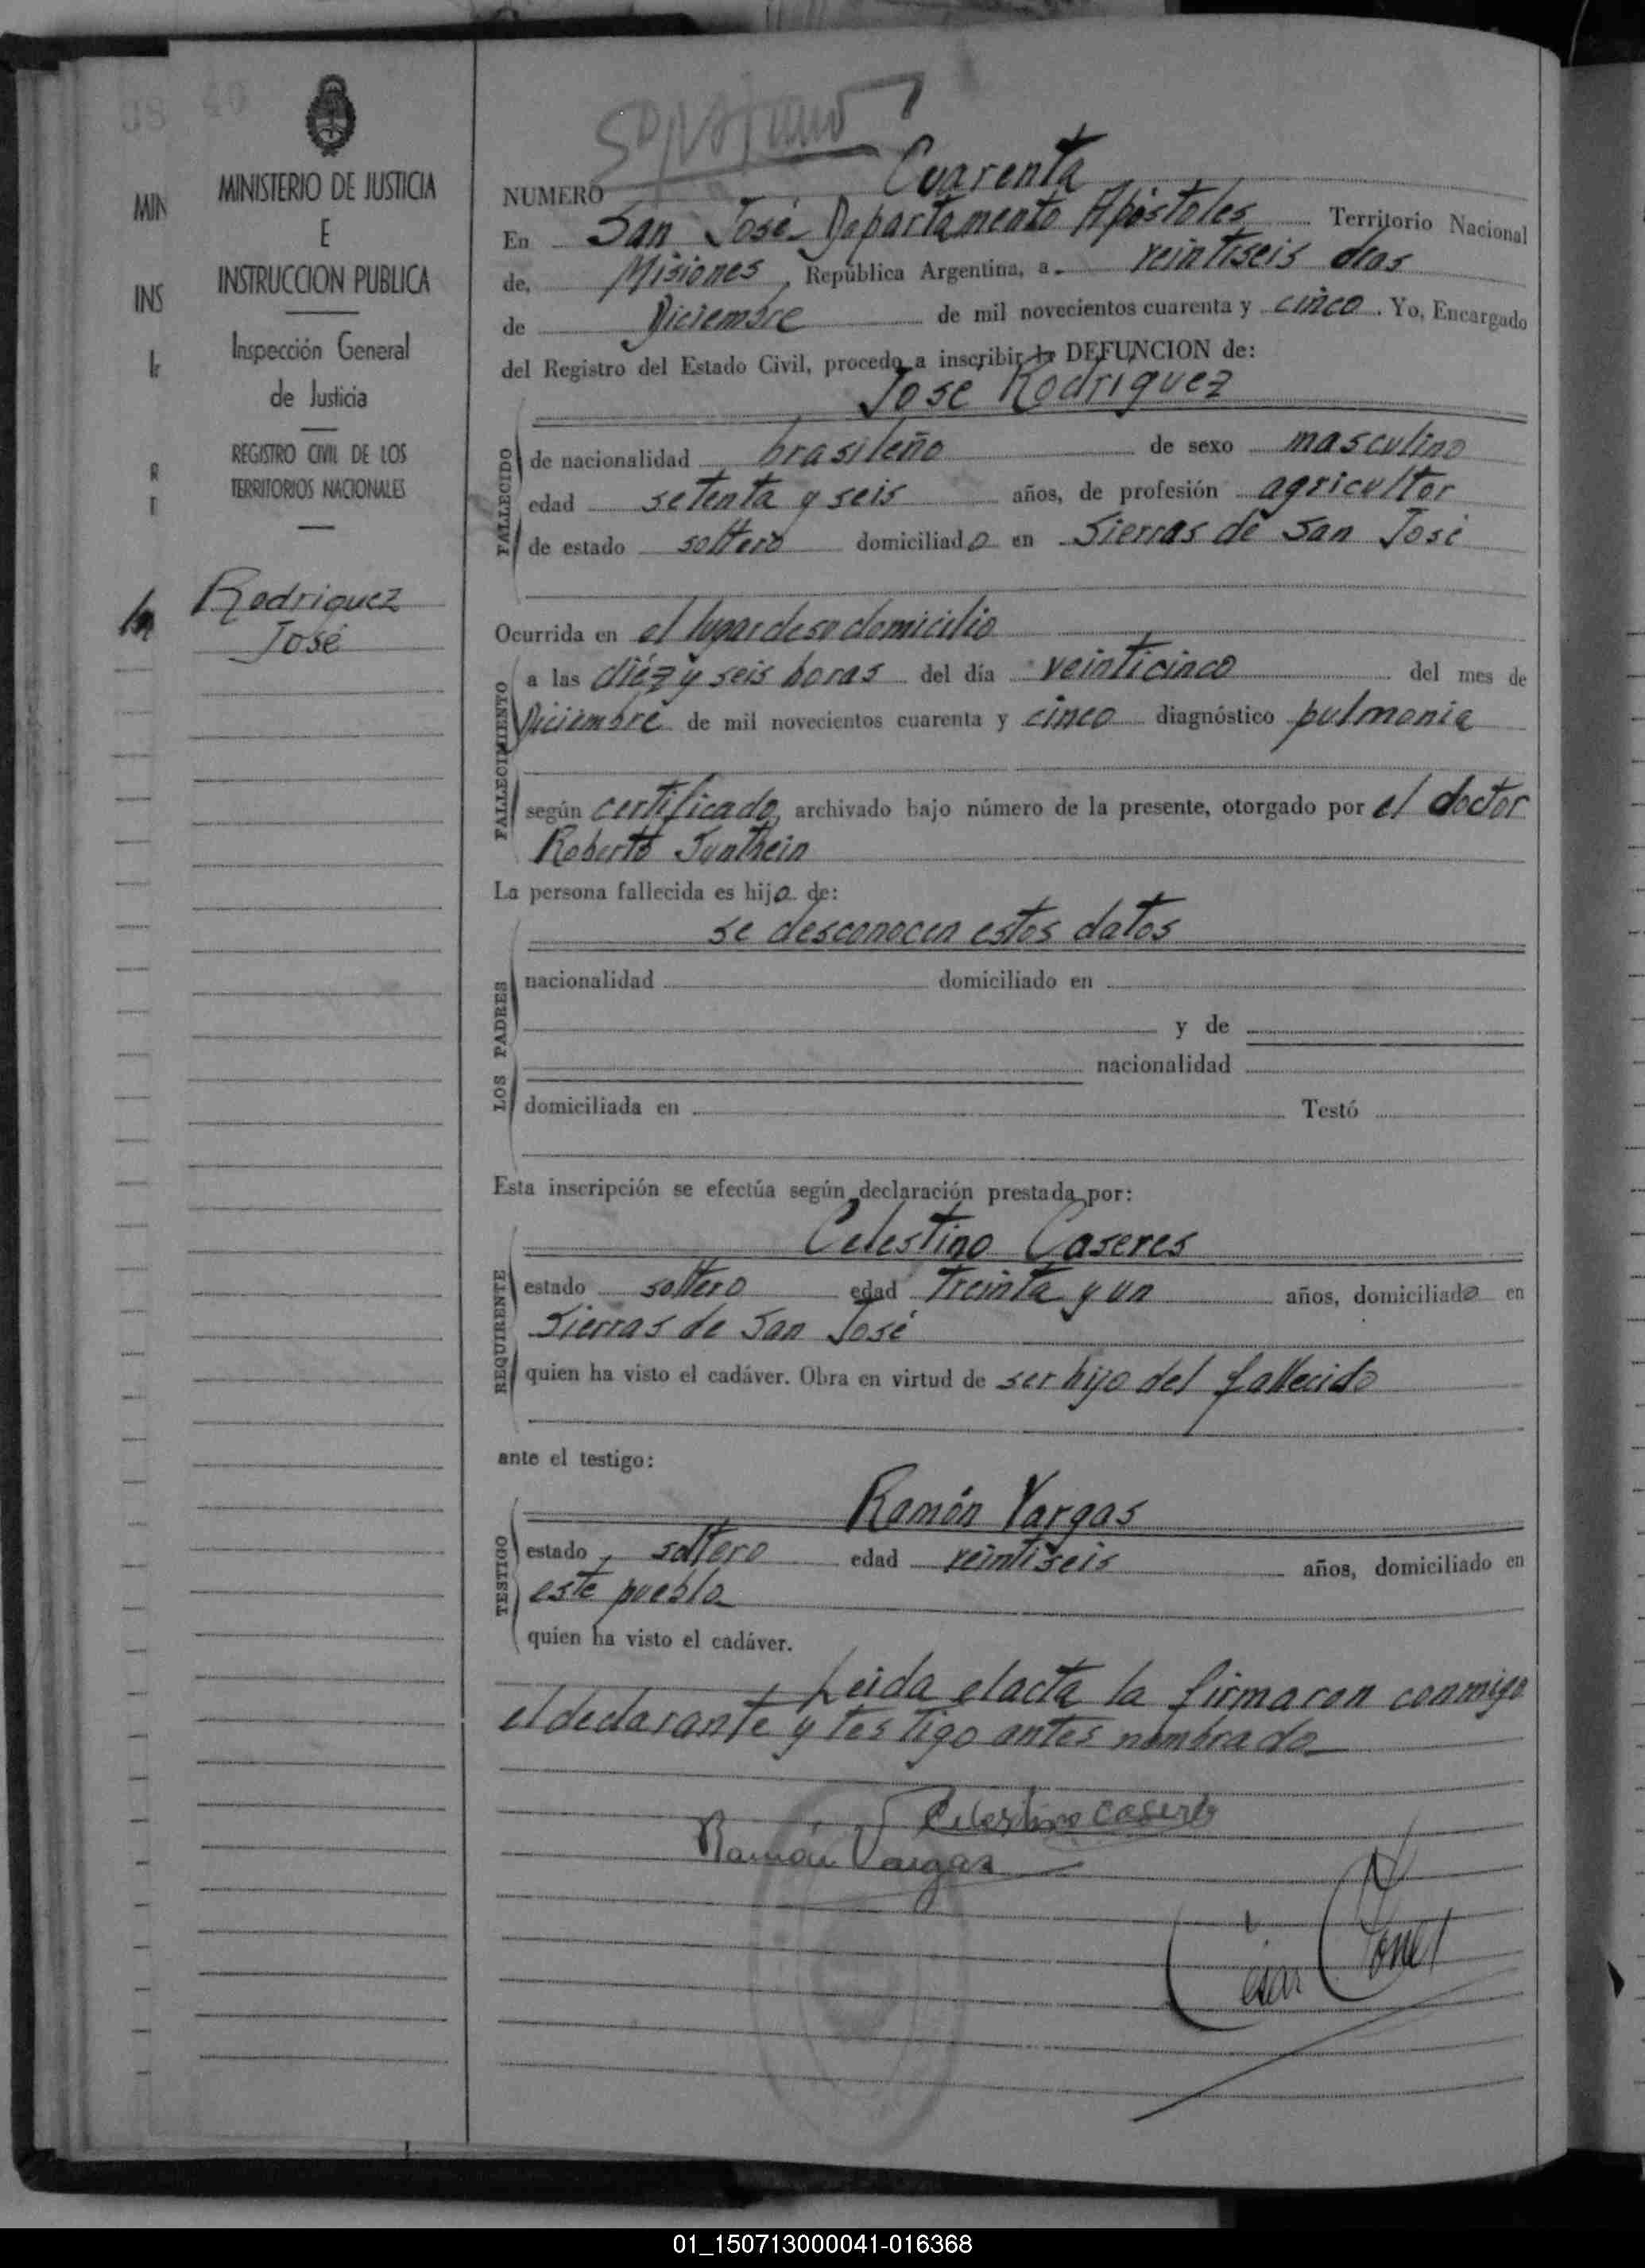 MINISTERIO DE JUSTICIA
E
INSTRUCCION PUBLICA
Inspección General
de Justicia
REGISTRO CIVIL DE LOS
TERRITORIOS NACIONALES
Rodriguez
José
MIN
INS
NUMERO Cuarenta
En San José Departamento Apóstoles Territorio Nacional
de, Misiones, República Argentina, a veintiseis dias
de Diciembre de mil novecientos cuarenta y cinco. Yo, Encargado
del Registro del Estado Civil, procedo a inscribir la DEFUNCION de:
José Rodriguez
FALLECIDO
de nacionalidad brasileño de sexo masculino
edad setenta y seis años, de profesión agricultor
de estado soltero domiciliado en Sierras de San José
Ocurrida en el lugar de su domicilio
FALLECIMIENTO
a las diéz y seis horas del día veinticinco del mes de
Diciembre de mil novecientos cuarenta y cinco diagnóstico pulmonia
según certificado, archivado bajo número de la presente, otorgado por el doctor
Roberto
La persona fallecida es hijo de:
se desconocen estos datos
LOS PADRES
nacionalidad domiciliado en
y de
nacionalidad
domiciliada en Testó
Esta inscripción se efectúa según declaración prestada por:
Celestino Caseres
REQUIRENTE
estado soltero edad treinta y un años, domiciliado en
Sierras de San José
quien ha visto el cadáver. Obra en virtud de ser hijo del fallecido
ante el testigo:
Ramón Vargas
TESTIGO
estado soltero edad veintiseis años, domiciliado en
este pueblo
quien ha visto el cadáver.
Leida el acta la firmaron conmigo
el declarante y testigo antes nombrado
Celestino Caseres
Ramón Vargas
01_150713000041-016368